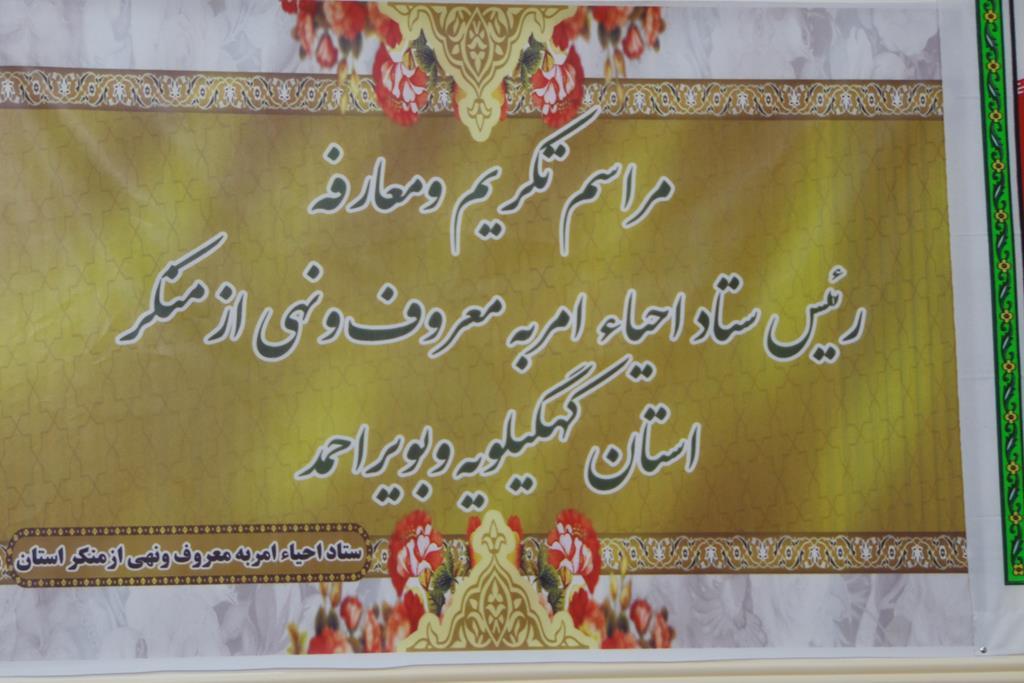 مراسم تکریم ومعارفه
رئیس ستاد احیاء امربه معروف ونهی ازمنکر
استان کهگیلویه وبویراحمد
ستاد احیاء امربه معروف ونهی ازمنکر استان